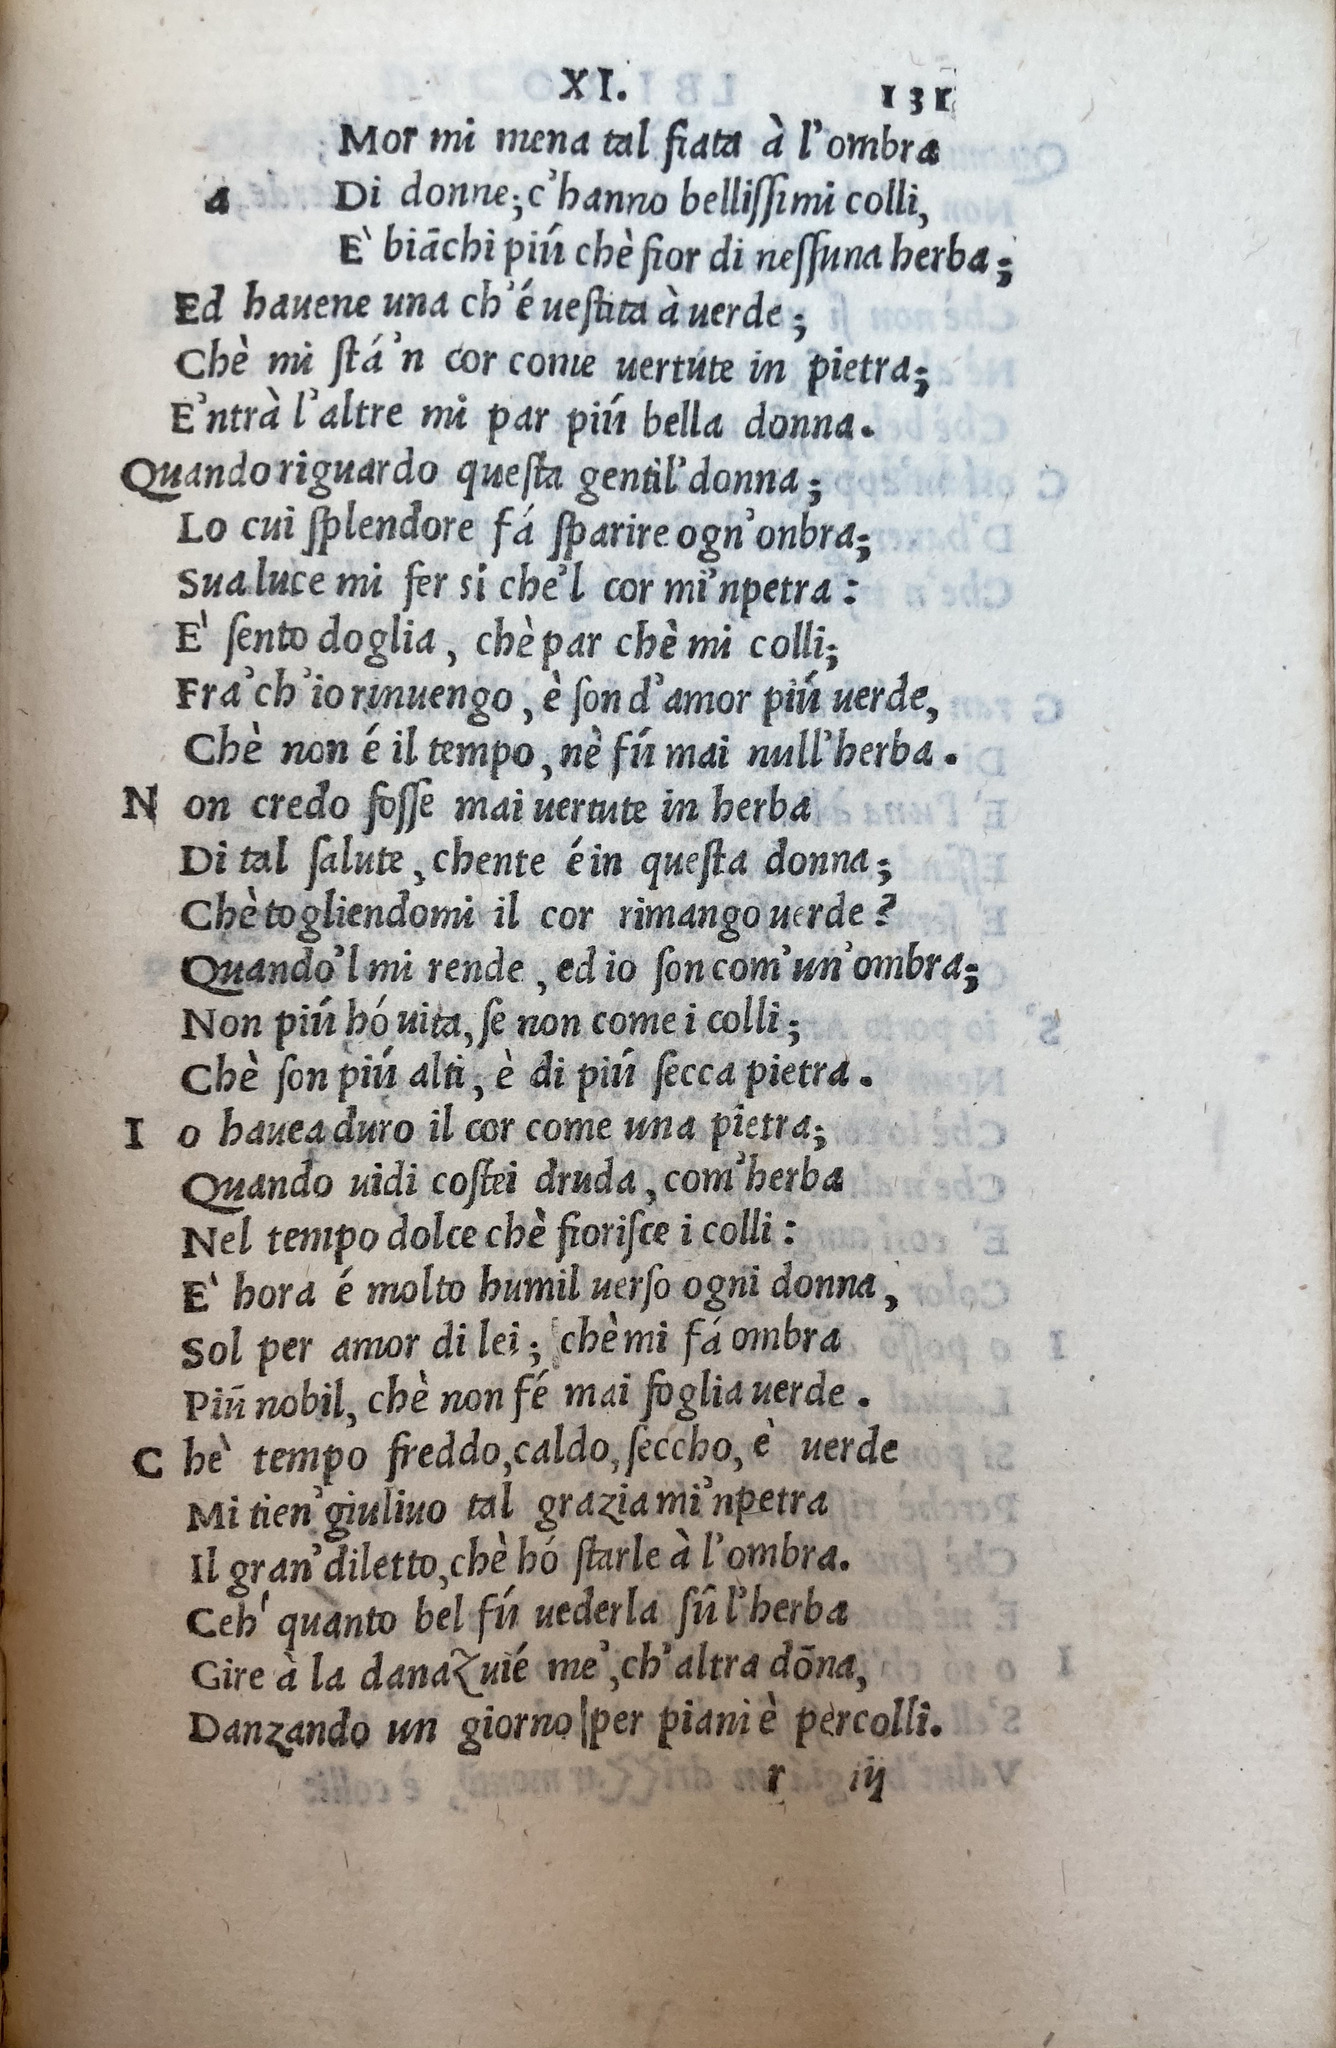 XI. 131
Mor mi mena tal fiata à l'ombra
a Di donne; c'hanno bellißimi colli,
E' biāchi piú chè fior di neſſuna herba;
Ed hauene una ch'é ueſtita à uerde;
Chè mi ſtá'n cor come uertúte in pietra;
E'ntrà l'altre mi par piú bella donna.
Quando riguardo queſta gentil'donna;
Lo cui ſplendore fá ſparire ogn'onbra;
Sua luce mi fer si che'l cor mi'npetra:
E' ſento doglia, chè par chè mi colli;
Fra'ch'io rinuengo, è ſon d'amor piú uerde,
Chè non é il tempo, nè fú mai null'herba.
N on credo foſſe mai uertute in herba
Di tal ſalute, chente é in queſta donna;
Chè togliendomi il cor rimango uerde?
Quando'l mi rende, ed io ſon com'un'ombra;
Non piú hó uita, ſe non come i colli;
Chè ſon piú alti, è di piú ſecca pietra.
I o hauea duro il cor come una pietra;
Quando uidi coſtei druda, com'herba
Nel tempo dolce chè fioriſce i colli:
E' hora é molto humil uerſo ogni donna,
Sol per amor di lei; chè mi fá ombra
Piú nobil, chè non fé mai foglia uerde.
C hè tempo freddo, caldo, ſeccho, è uerde
Mi tien'giuliuo tal grazia mi'npetra
Il gran'diletto, chè hó ſtarle à l'ombra.
Ceh' quanto bel fú uederla ſú l'herba
Gire à la danaζuié me', ch'altra dōna,
Danzando un giorno per piani è per colli.
r iij